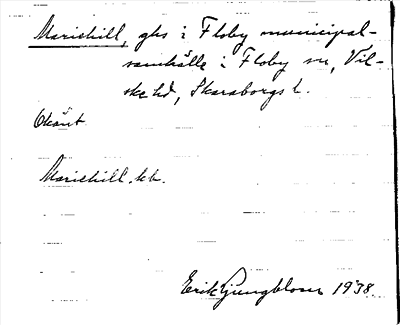 Mariehill, ghs i Floby municipal-
samhälle i Floby sn, Vil-
ske hd, Skaraborgs l.
Okänt
Mariehill. kb.
Erik Ljungblom 1938.